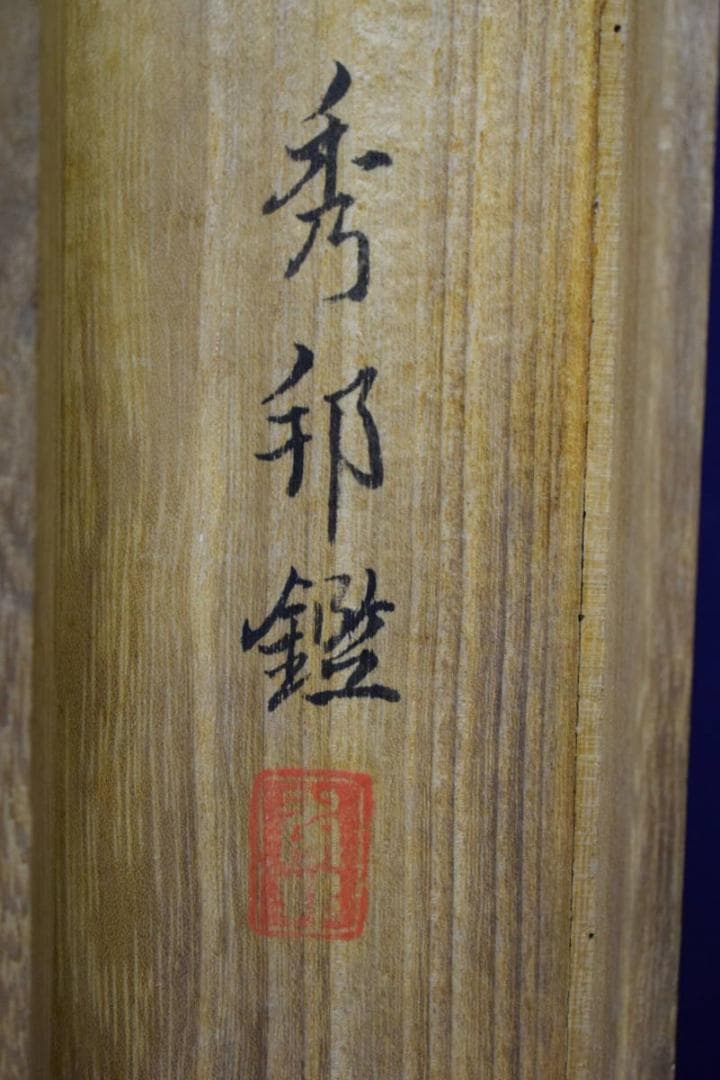 秀邦鑑